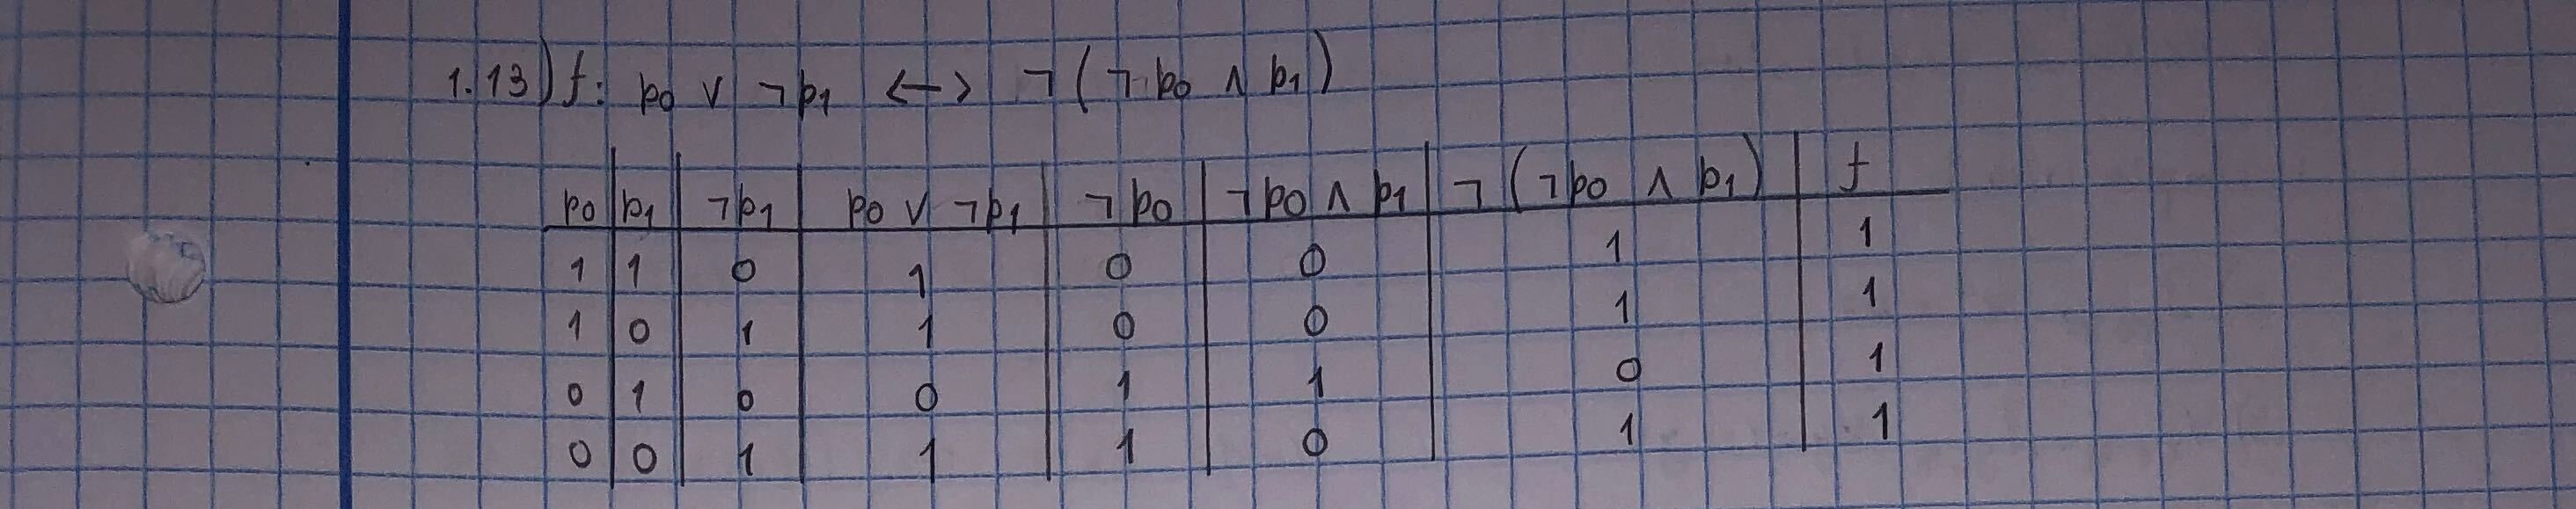 1.13) f: p0 ∨ ¬p1 <-> ¬(¬p0 ∧ p1)
p0 p1 ¬p1 p0 ∨ ¬p1 ¬p0 ¬p0 ∧ p1 ¬(¬p0 ∧ p1) f
1 1 0 1 0 0 1 1
1 0 1 1 0 0 1 1
0 1 0 0 1 1 0 1
0 0 1 1 1 0 1 1